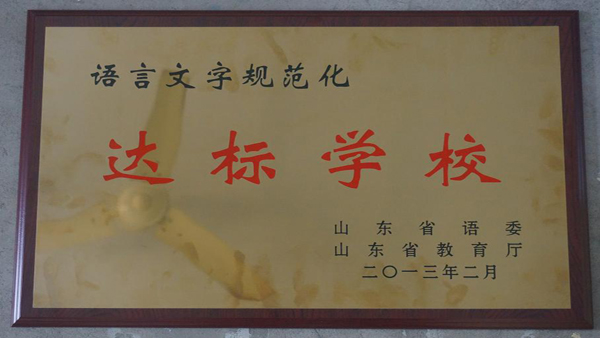 语言文字规范化
达标学校
山东省语委
山东省教育厅
二〇一三年二月